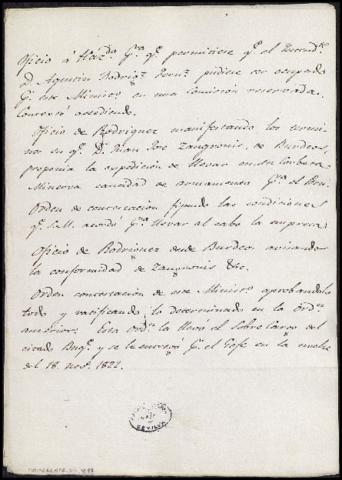 Oficio á Haz.da p.a q.e permitiese q.e el Intend.te
D. Agustin Rodrig.z Fern.z pudiese ser ocupado
p.r este Minist.o en una Comision reservada.
Contextó accediendo.
Oficio de Rodriguez manifestando los termi-
nos en q.e D. Juan José Zangronis, de Burdeos,
proponia la expedicion de llevar en su
Minerva cantidad de armamento p.a el Perú.
Orden de contestacion fijando las condiciones
q.e S.M. acordó p.a llevar al cabo la empresa.
Oficio de Rodriguez desde Burdeos avisando
la conformidad de Zangronis
Orden contestacion de este Minist.o aprobandolo
todo y ratificando lo determinado en la ord.n
anterior. Esta ord.n la llevó el Sobre Cargo del
citado Buq.e y se le entregó p.r el Gefe en la noche
del 18. nov.e 1822.
SEVILLA